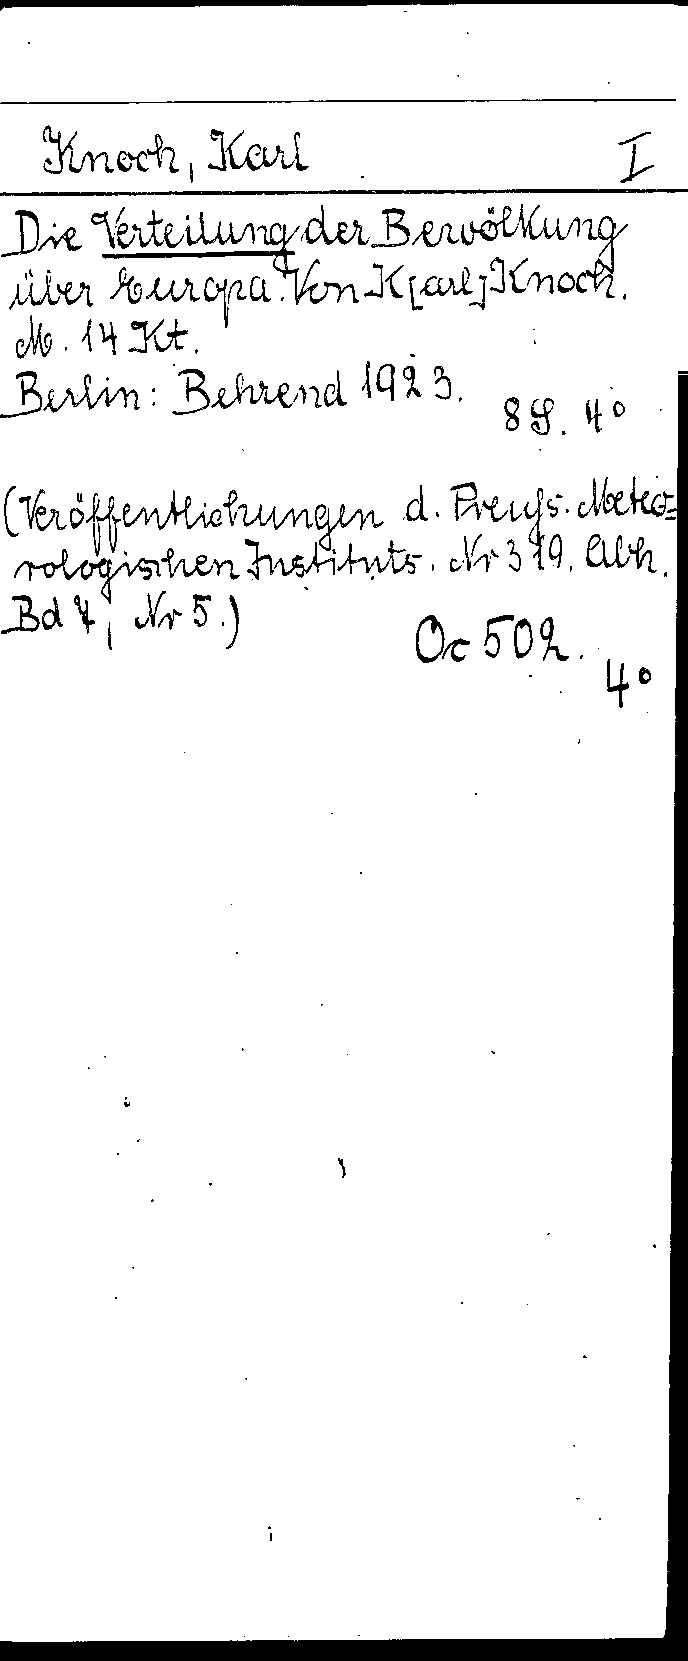 Knoch, Karl I
Die Verteilung der Bewölkung
über Europa. Von K[arl] Knoch.
M. 14 Kt.
Berlin: Behrend 1923.
8 S. 4°
(Veröffentlichungen d. Preuß. Meteo=
rologischen Instituts. Nr 319. Abh.
Bd 7, Nr 5.)
Oc 502.
4°